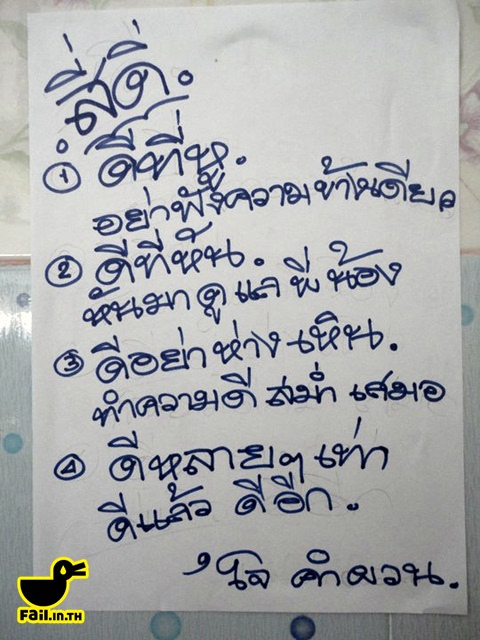 สี่ดี.
① ดีที่หู.
อย่าฟังความข้างเดียว
② ดีที่หัน.
หันมาดูแลพี่น้อง
③ ดีอย่าห่างเหิน.
ทำความดี สม่ำ เสมอ
④ ดีหลายๆเท่า
ดีแล้ว ดีอีก.
โจ คำผวน.
FAiL.in.TH